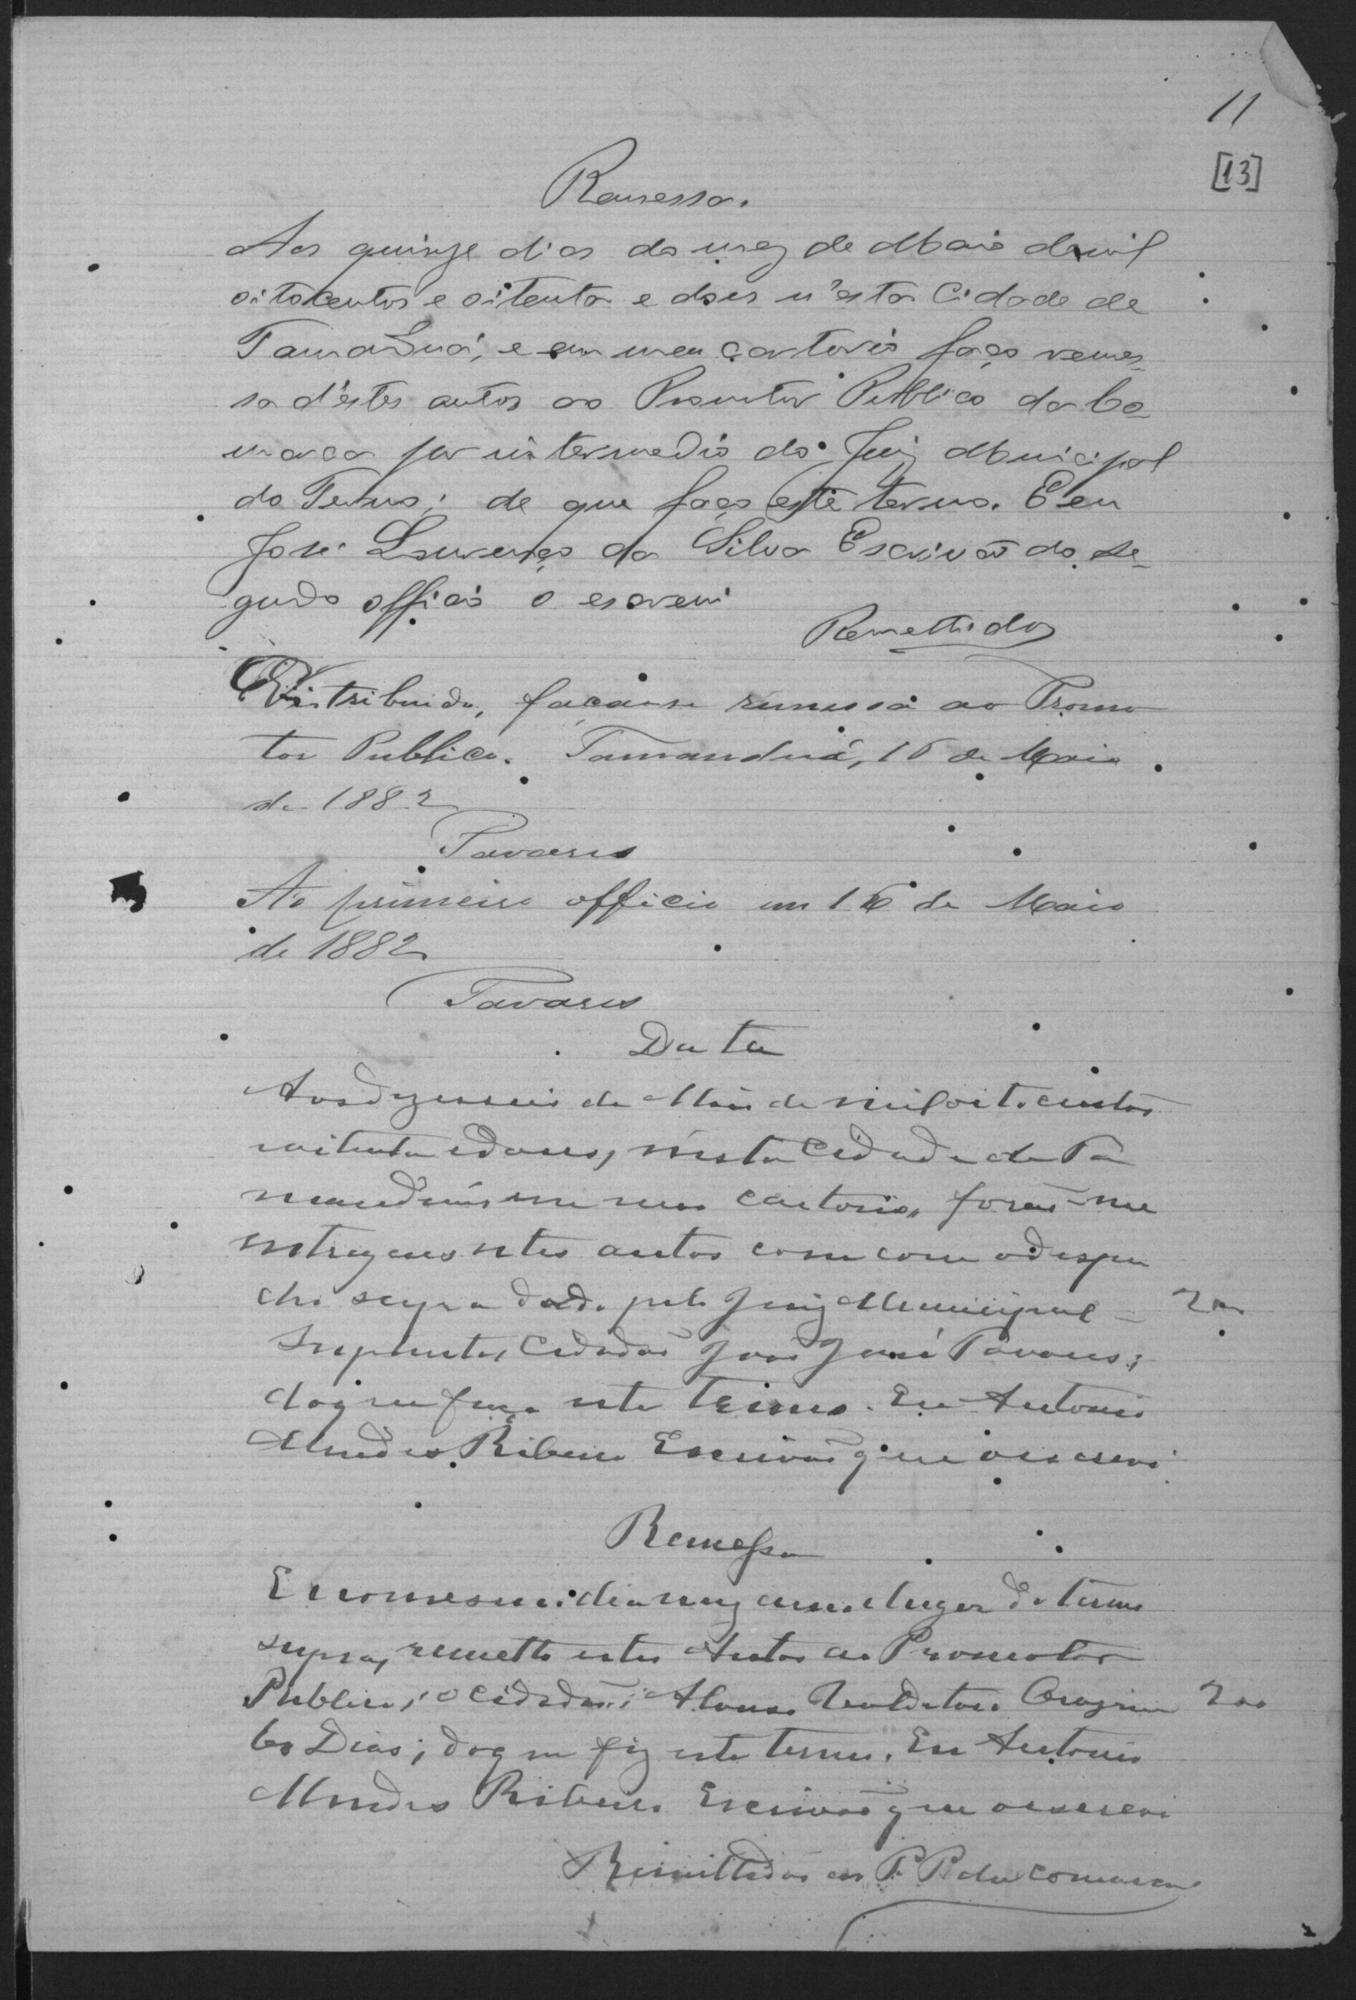 11
[13]
Remessa.
Aos quinze dias do mez de Maio de mil
oitocentos e oitenta e dois n'esta Cidade de
Tamanduá, e em meu cartorio faço remes-
sa d'estes autos ao Promotor Publico da Co-
marca por intermedio do Juiz Municipal
do Termo; de que faço este termo. E eu
José Lourenço da Silva Escrivaõ do se-
gundo officio o escrevi
Remettidos
Distribuido, façase remessa ao Promo
tor Publico. Tamanduá, 16 de Maio
de 1882
Tavares
Ao primeiro officio em 16 de Maio
de 1882
Tavares
Data
Aos dezesseis de Maio de mil oitocentos
e oitenta e doues, nesta Cidade de Ta
manduá em meu cartorio, foraõ-me
entregues estes autos com o despa
cho supra dado pelo Juiz Municipal 200
Supplente, Cidadaõ João José Tavares;
do que faço este termo. Eu Antonio
Mendes Ribeiro Escrivaõ que o escrevi
Remessa
E no mesmo dia mez anno e lugar do termo
supra, remetto estes Autos ao Promotor
Publico, o Cidadaõ 200
Dias; do que fiz este termo. Eu Antonio
Mendes Ribeiro Escrivaõ que o escrevi
Remettidos ao P. P. da Comarca